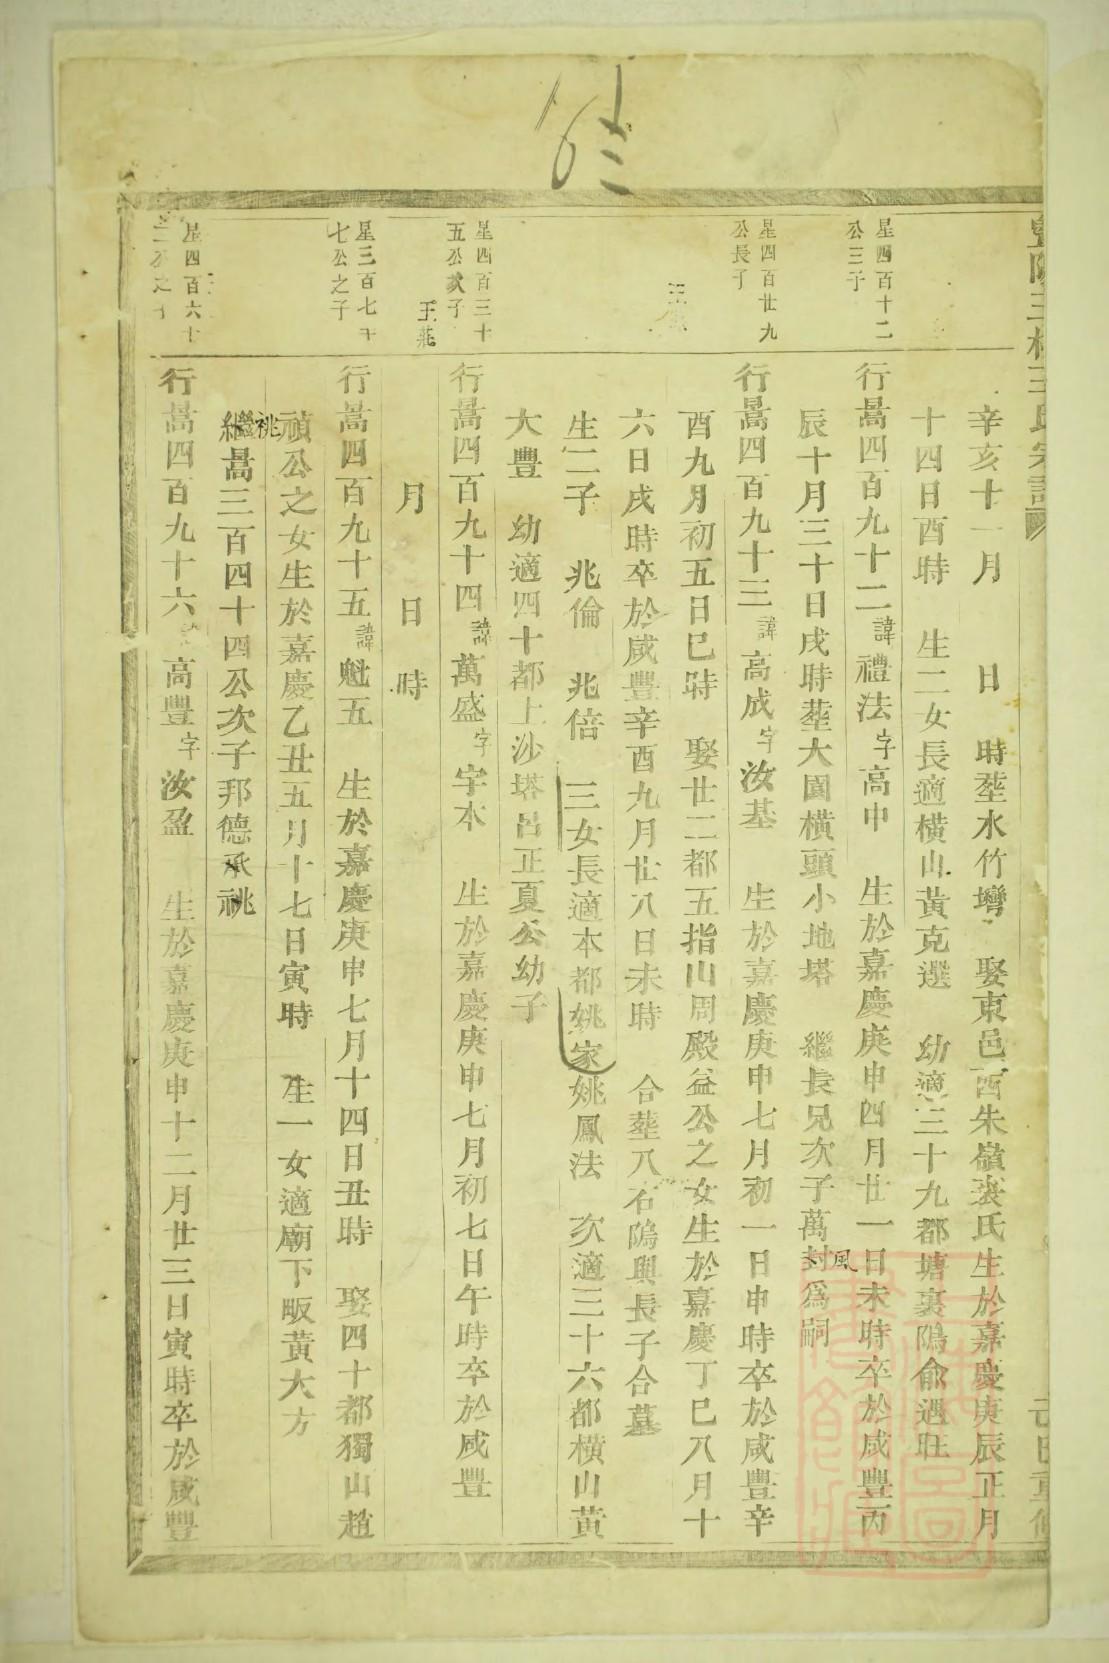 辛亥十一月　日　時塟水竹塆　娶東邑西朱嶺裘氏生於嘉慶庚辰正月
十四日酉時　生二女長適橫山黃克選　幼適三十九都塘裏隝俞遇旺
星四百十二
公三子
行暠四百九十二諱禮法字高中　生於嘉慶庚申四月廿一日未時卒於咸豐丙
辰十月三十日戌時塟大園橫頭小地塔　繼長兄次子萬封爲嗣
風
星四百廿九
公長子
行暠四百九十三諱高成字汝基　生於嘉慶庚申七月初一日申時卒於咸豐辛
酉九月初五日巳時　娶廿二都五指山周殿益公之女生於嘉慶丁巳八月十
六日戌時卒於咸豐辛酉九月廿八日未時　合塟八石隝與長子合墓
生二子　兆倫　兆倍　三女長適本都姚家姚鳳法　次適三十六都橫山黃
大豐　幼適四十都上沙塔呂正夏公幼子
星四百三十
五公次子
王莊
行暠四百九十四諱萬盛字宇本　生於嘉慶庚申七月初七日午時卒於咸豐
月　日　時
星三百七十
七公之子
行暠四百九十五諱魁五　生於嘉慶庚申七月十四日丑時　娶四十都獨山趙
禎公之女生於嘉慶乙丑五月十七日寅時　生一女適廟下畈黃大方
祧
繼暠三百四十四公次子邦德承祧
星四百六十
行暠四百九十六諱高豐字汝盈　生於嘉慶庚申十二月廿三日寅時卒於咸豐